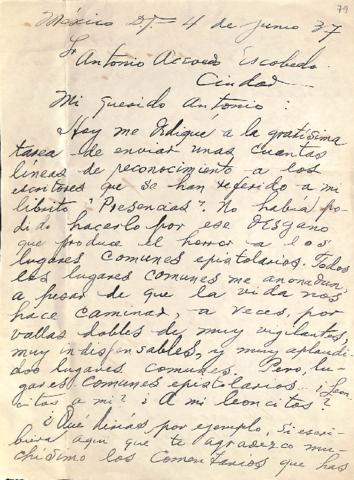 79
México D.F. 4 de junio 37
Sr Antonio Acevedo Escobedo.
Ciudad
Mi querido Antonio:
Hoy me dediqué a la gratísima
tarea de enviar unas cuantas
líneas de reconocimiento a los
escritores que se han referido a mi
librito "Presencias". No había po-
dido hacerlo por ese desgano
que produce el horror a los
lugares comunes epistolarios. Todos
los lugares comunes me anonadan,
a pesar de que la vida nos
hace caminar, a veces, por
vallas dobles de muy vigilantes,
muy indispensables, y muy aplaudi-
dos lugares comunes. Pero, lu-
gares comunes epistolarios... ¿Leon-
citos a mí? ¿A mí leoncitos?
¿Qué dirías, por ejemplo, si escri-
biera aquí que te agradezco mu-
chísimo los comentarios que has